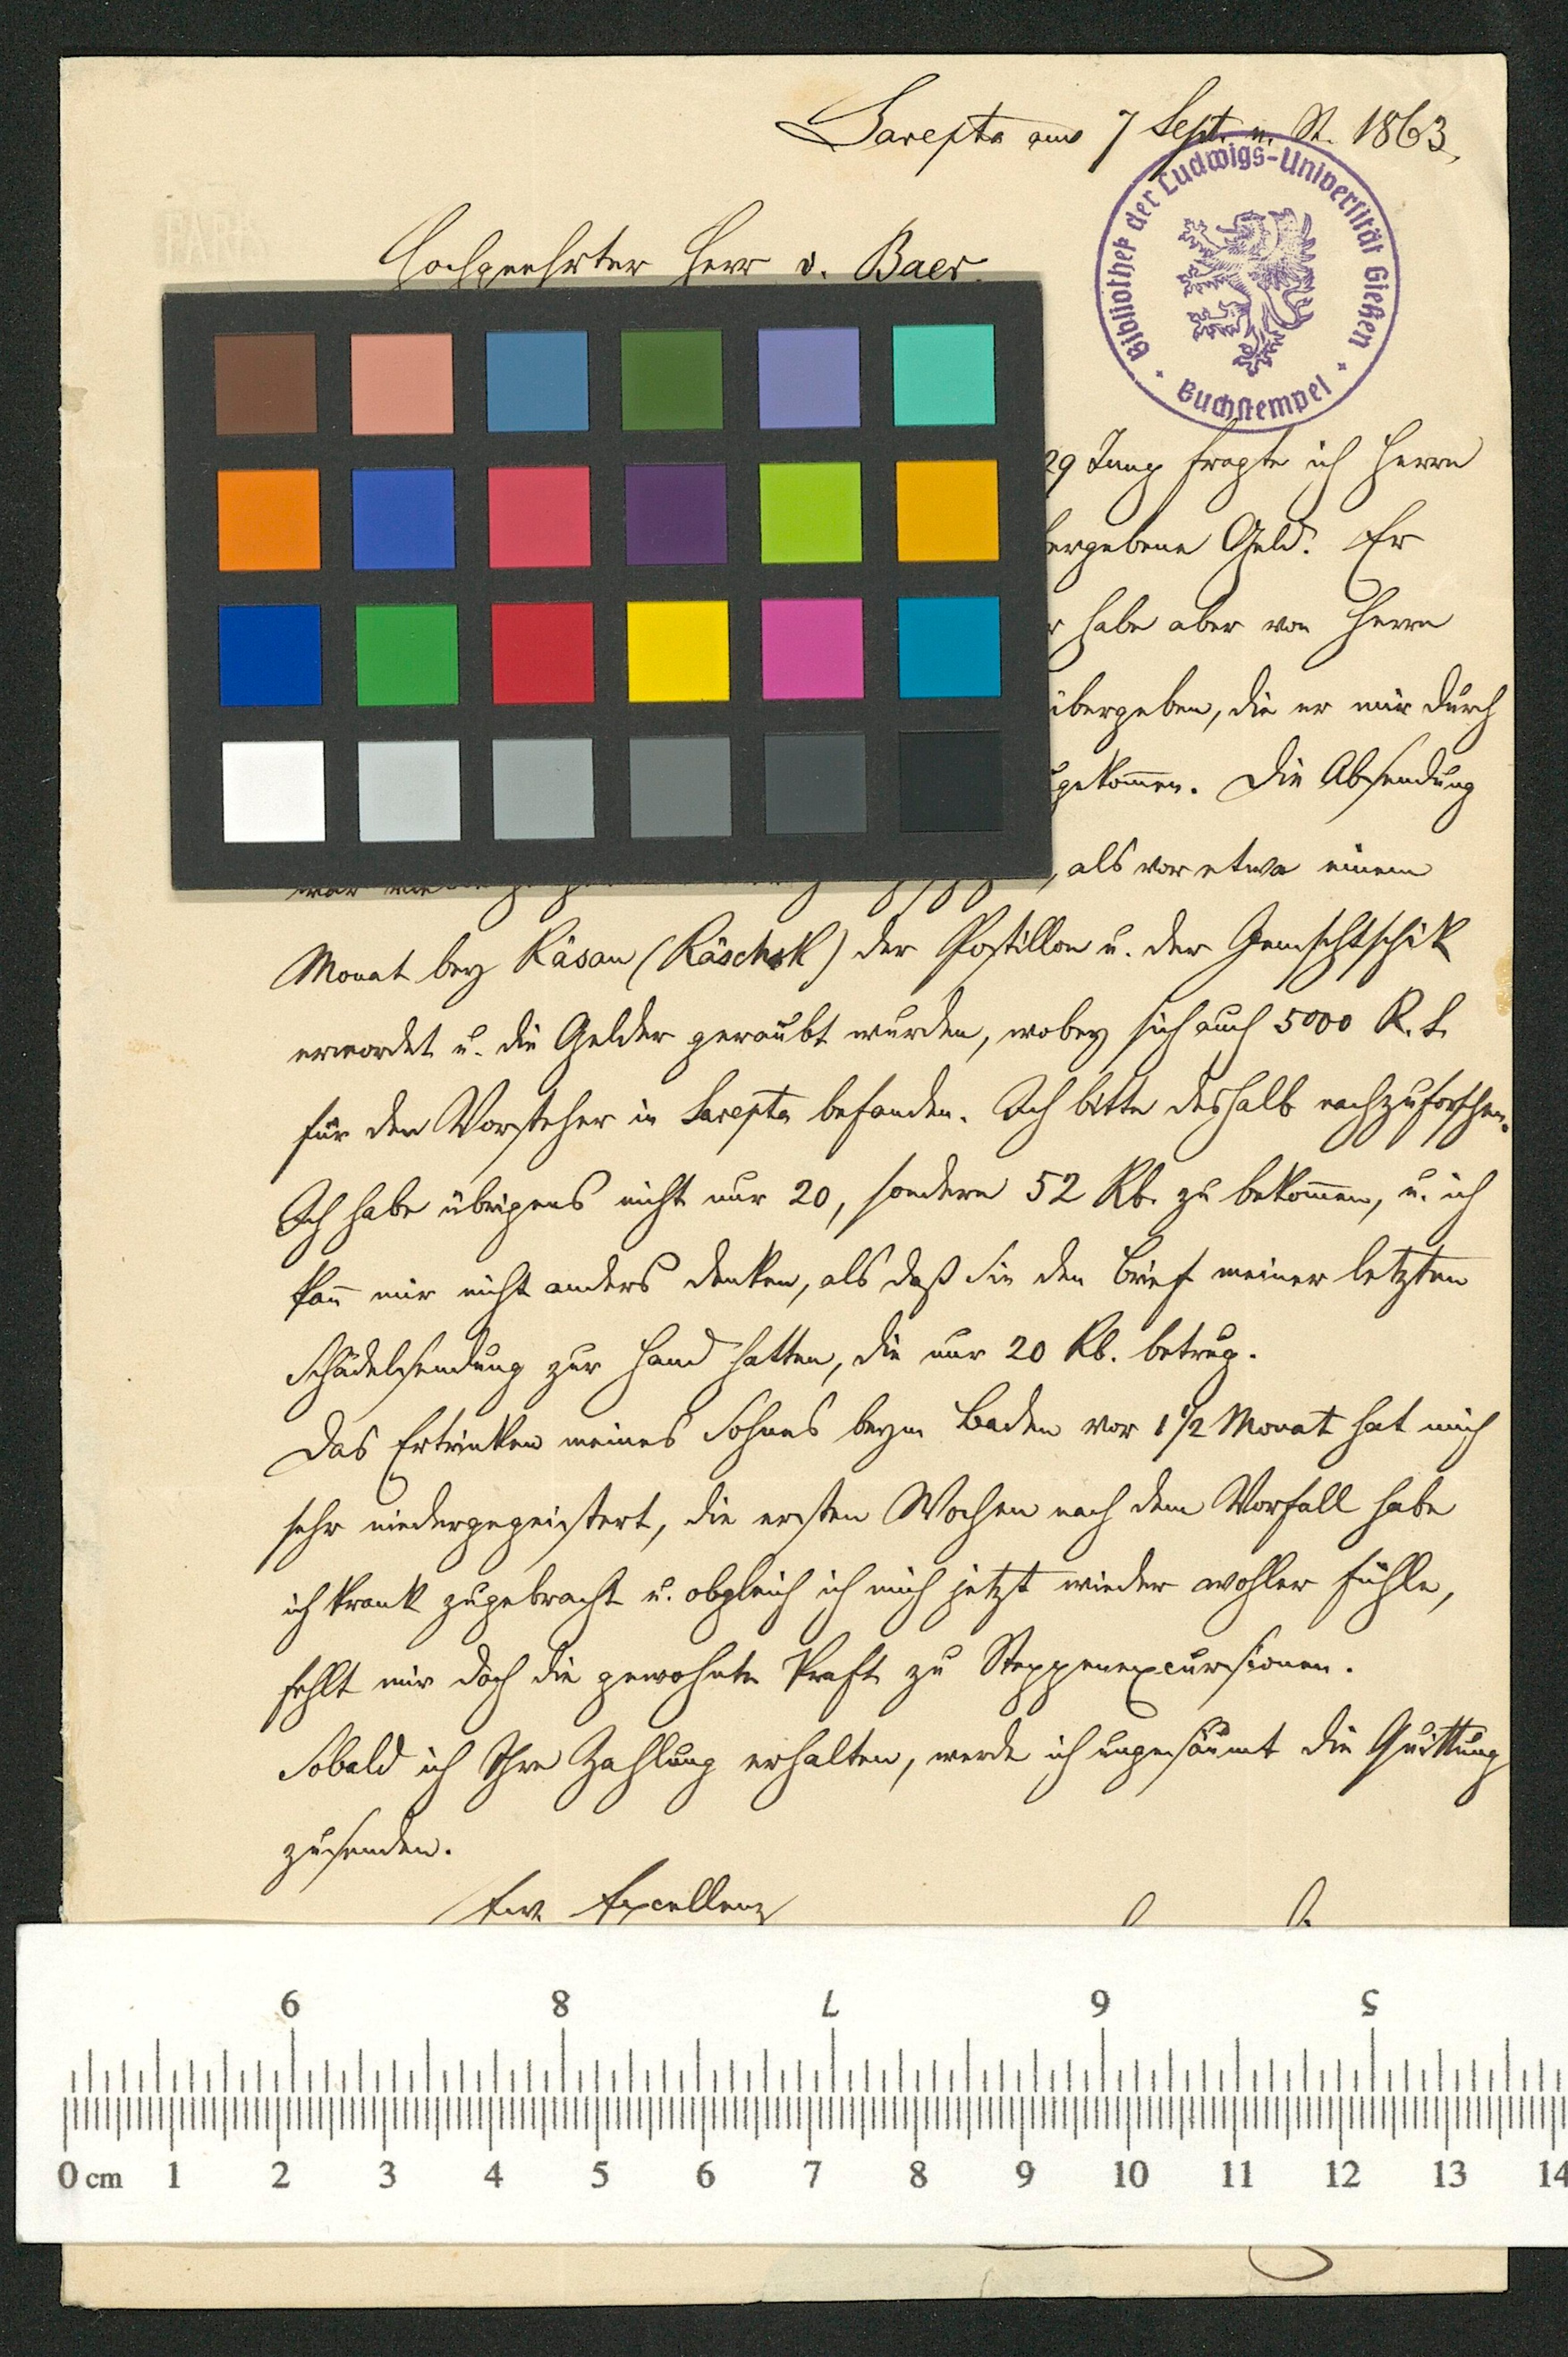 Sarepta am 7 Sept. n. St. 1863.
Hochgeehrter Herr v. Baer.
Bibliothek der Ludwigs-Universität Gießen
Buchstempel
29 Juny fragte ich Herrn
ergebene Geld. Er
habe aber von Herrn
übergeben, die er mir durch
gekom̄en. Die Absendung
, als vor etwa einem
Monat bey Räsan (Räschsk) der Postillon u. der Jemschtschik
ermordet u. die Gelder geraubt wurden, wobey sich auch 5000 R. S.
für den Vorsteher in Sarepta befanden. Ich bitte deshalb nachzuforschen.
Ich habe übrigens nicht nur 20, sondern 52 Rb. zu bekom̄en, u. ich
kan̄ mir nicht anders denken, als daß Sie den Brief meiner letzten
Schädelsendung zur Hand hatten, die nur 20 Rb. betrug.
Das Ertrinken meines Sohnes beym Baden vor 1 1/2 Monat hat mich
sehr niedergegeistert, die ersten Wochen nach dem Vorfall habe
ich krank zugebracht u. obgleich ich mich jetzt wieder wohler fühle,
fehlt mir doch die gewohnte Kraft zu Steppenexcursionen.
Sobald ich Ihre Zahlung erhalten, werde ich ungesäumt die Quittung
zusenden.
Ew. Excellenz
9 8 7 6 5
0 cm 1 2 3 4 5 6 7 8 9 10 11 12 13 14